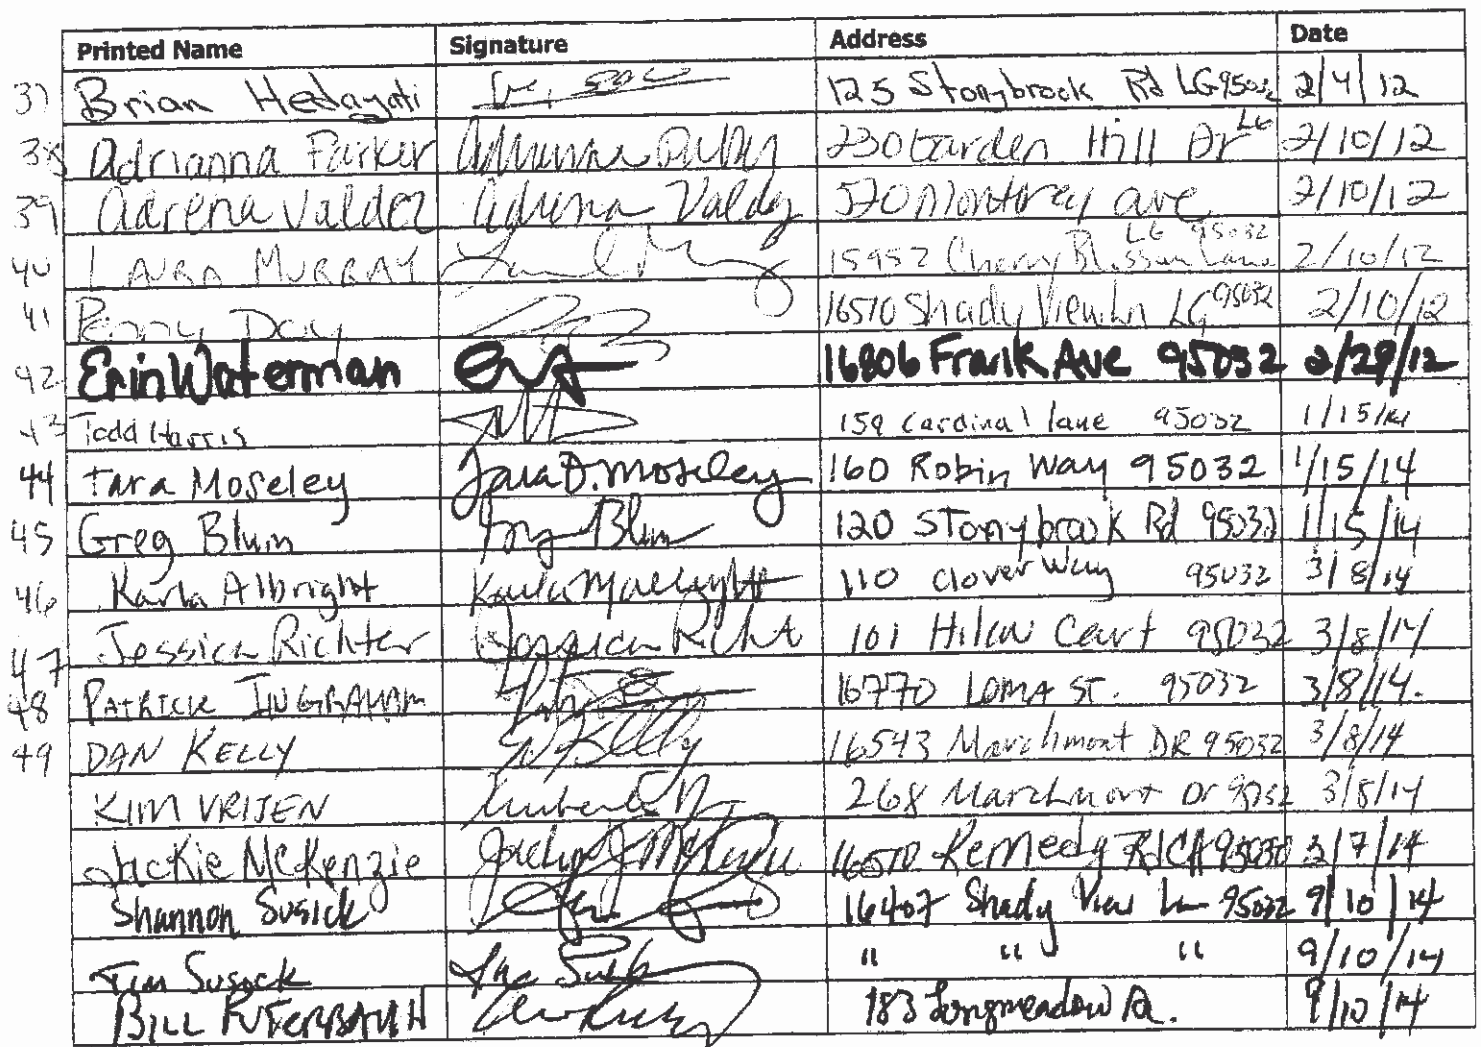 Printed Name Signature Address Date
37 Brian Hedayati 125 Stonybrook Rd LG 95032 2/4/12
38 Adrianna Parker 230 Garden Hill Dr LG 2/10/12
39 Adrena Valdez Adrena Valdez 570 Monterey ave 2/10/12
LG 95032
40 LAURA MURRAY 15952 Cherry Blossom Lane 2/10/12
41 Penny Day 16510 Shady View Ln LG 95032 2/10/12
42 Erin Waterman 16806 Frank Ave 95032 2/29/12
43 Todd Harris 159 Cardinal lane 95032 1/15/14
44 Tara Moseley Tara D. Moseley 160 Robin Way 95032 1/15/14
45 Greg Blum Greg Blum 120 Stonybrook Rd 95032 1/15/14
46 Karla Albright 110 Clover Way 95032 3/8/14
47 Jessica Richter Jessica Richt 101 Hilow Court 95032 3/8/14
48 PATRICK INGRAHAM 16770 LOMA ST. 95032 3/8/14.
49 DAN KELLY 16543 Marchmont DR 95032 3/8/14
KIM VRIJEN 268 Marchmont Dr 95032 3/8/14
Jackie McKenzie Kennedy 3/7/14
Shannon Susick 16407 Shady View Ln 95032 9/10/14
Tim Susick " " " 9/10/14
BILL 183 Longmeadow Dr. 9/10/14